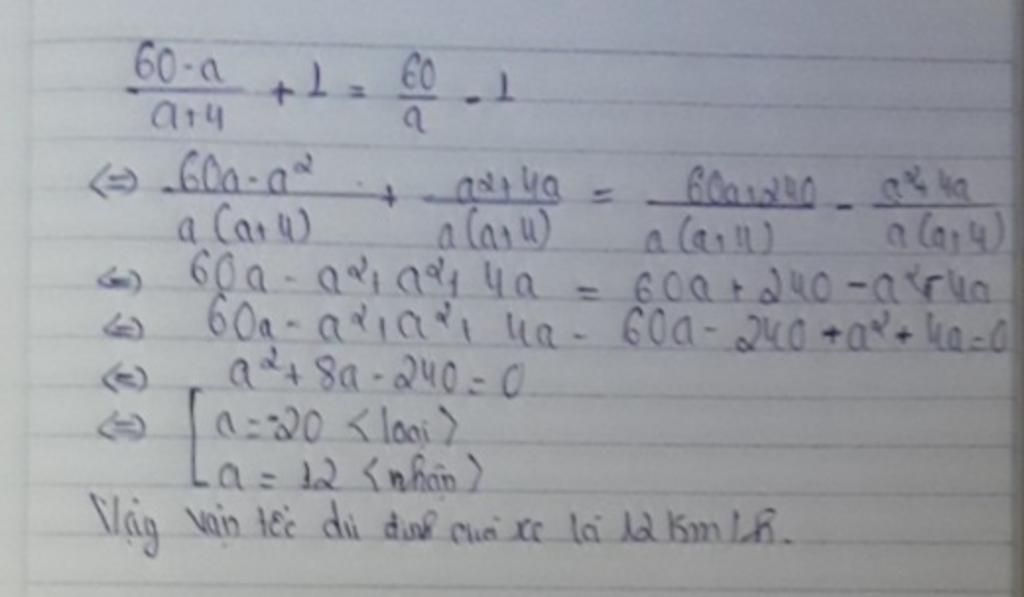 (60-a)/(a+4) + 1 = 60/a - 1
⇔ (60a-a²)/(a(a+4)) + (a²+4a)/(a(a+4)) = (60a+240)/(a(a+4)) - (a²+4a)/(a(a+4))
⇔ 60a - a² + a² + 4a = 60a + 240 - a² - 4a
⇔ 60a - a² + a² + 4a - 60a - 240 + a² + 4a = 0
⇔ a² + 8a - 240 = 0
⇔ [ a = -20 <loại>
a = 12 <nhận>
Vậy vận tốc dự định của xe là 12 km/h.